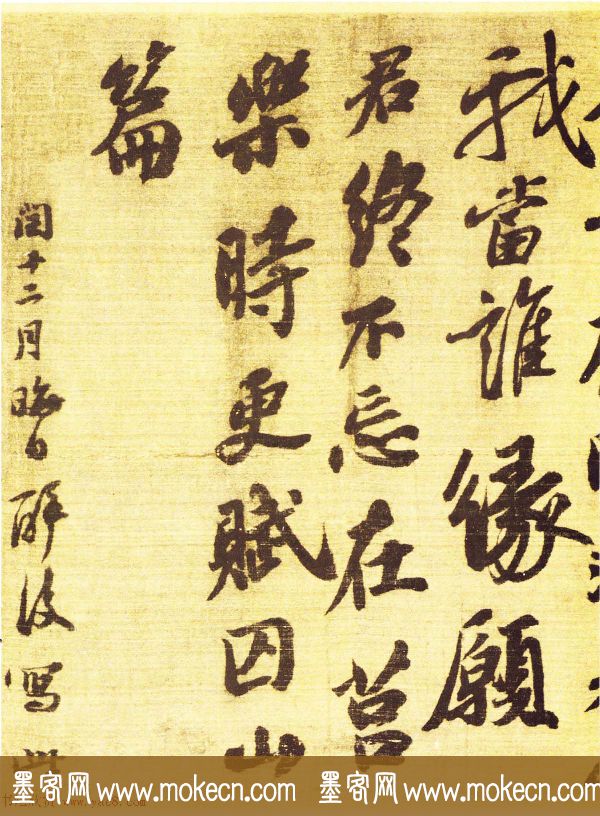 我當誰緣願
君終不忘在莒
樂時更賦囚山
篇
閏十二月晦日醉後寫此
墨客网 www.mokecn.com 墨客网 www.mokecn.com